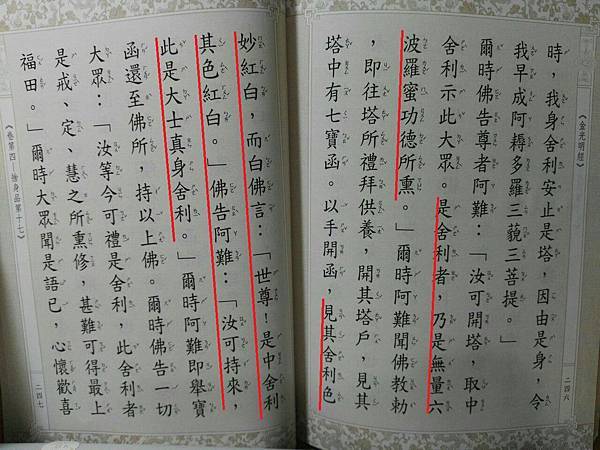 《金光明經》
二四六
時，我身舍利安止是塔，因由是身，令
我早成阿耨多羅三藐三菩提。」
爾時佛告尊者阿難：「汝可開塔，取中
舍利示此大眾。是舍利者，乃是無量六
波羅蜜功德所熏。」爾時阿難聞佛教勅
，即往塔所禮拜供養，開其塔戶，見其
塔中有七寶函。以手開函，見其舍利色
妙紅白，而白佛言：「世尊！是中舍利
其色紅白。」佛告阿難：「汝可持來，
此是大士真身舍利。」爾時阿難即舉寶
函還至佛所，持以上佛。爾時佛告一切
大眾：「汝等今可禮是舍利，此舍利者
是戒、定、慧之所熏修，甚難可得最上
福田。」爾時大眾聞是語已，心懷歡喜
《卷第四－捨身品第十七》
二四七